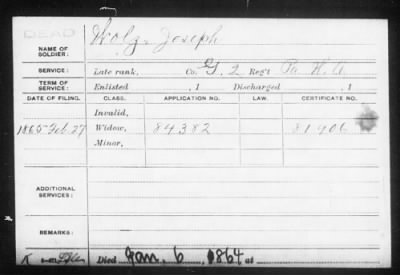 DEAD
NAME OF SOLDIER: Wolz, Joseph
SERVICE: Late rank, Co. G, 2 Reg't Pa. H. A.
TERM OF SERVICE: Enlisted , 1 Discharged , 1
DATE OF FILING. CLASS. APPLICATION NO. LAW. CERTIFICATE NO.
Invalid,
1865 Feb. 27 Widow, 84382 81906
Minor,
ADDITIONAL SERVICES:
REMARKS:
K Died Jan. 6, 1864 at